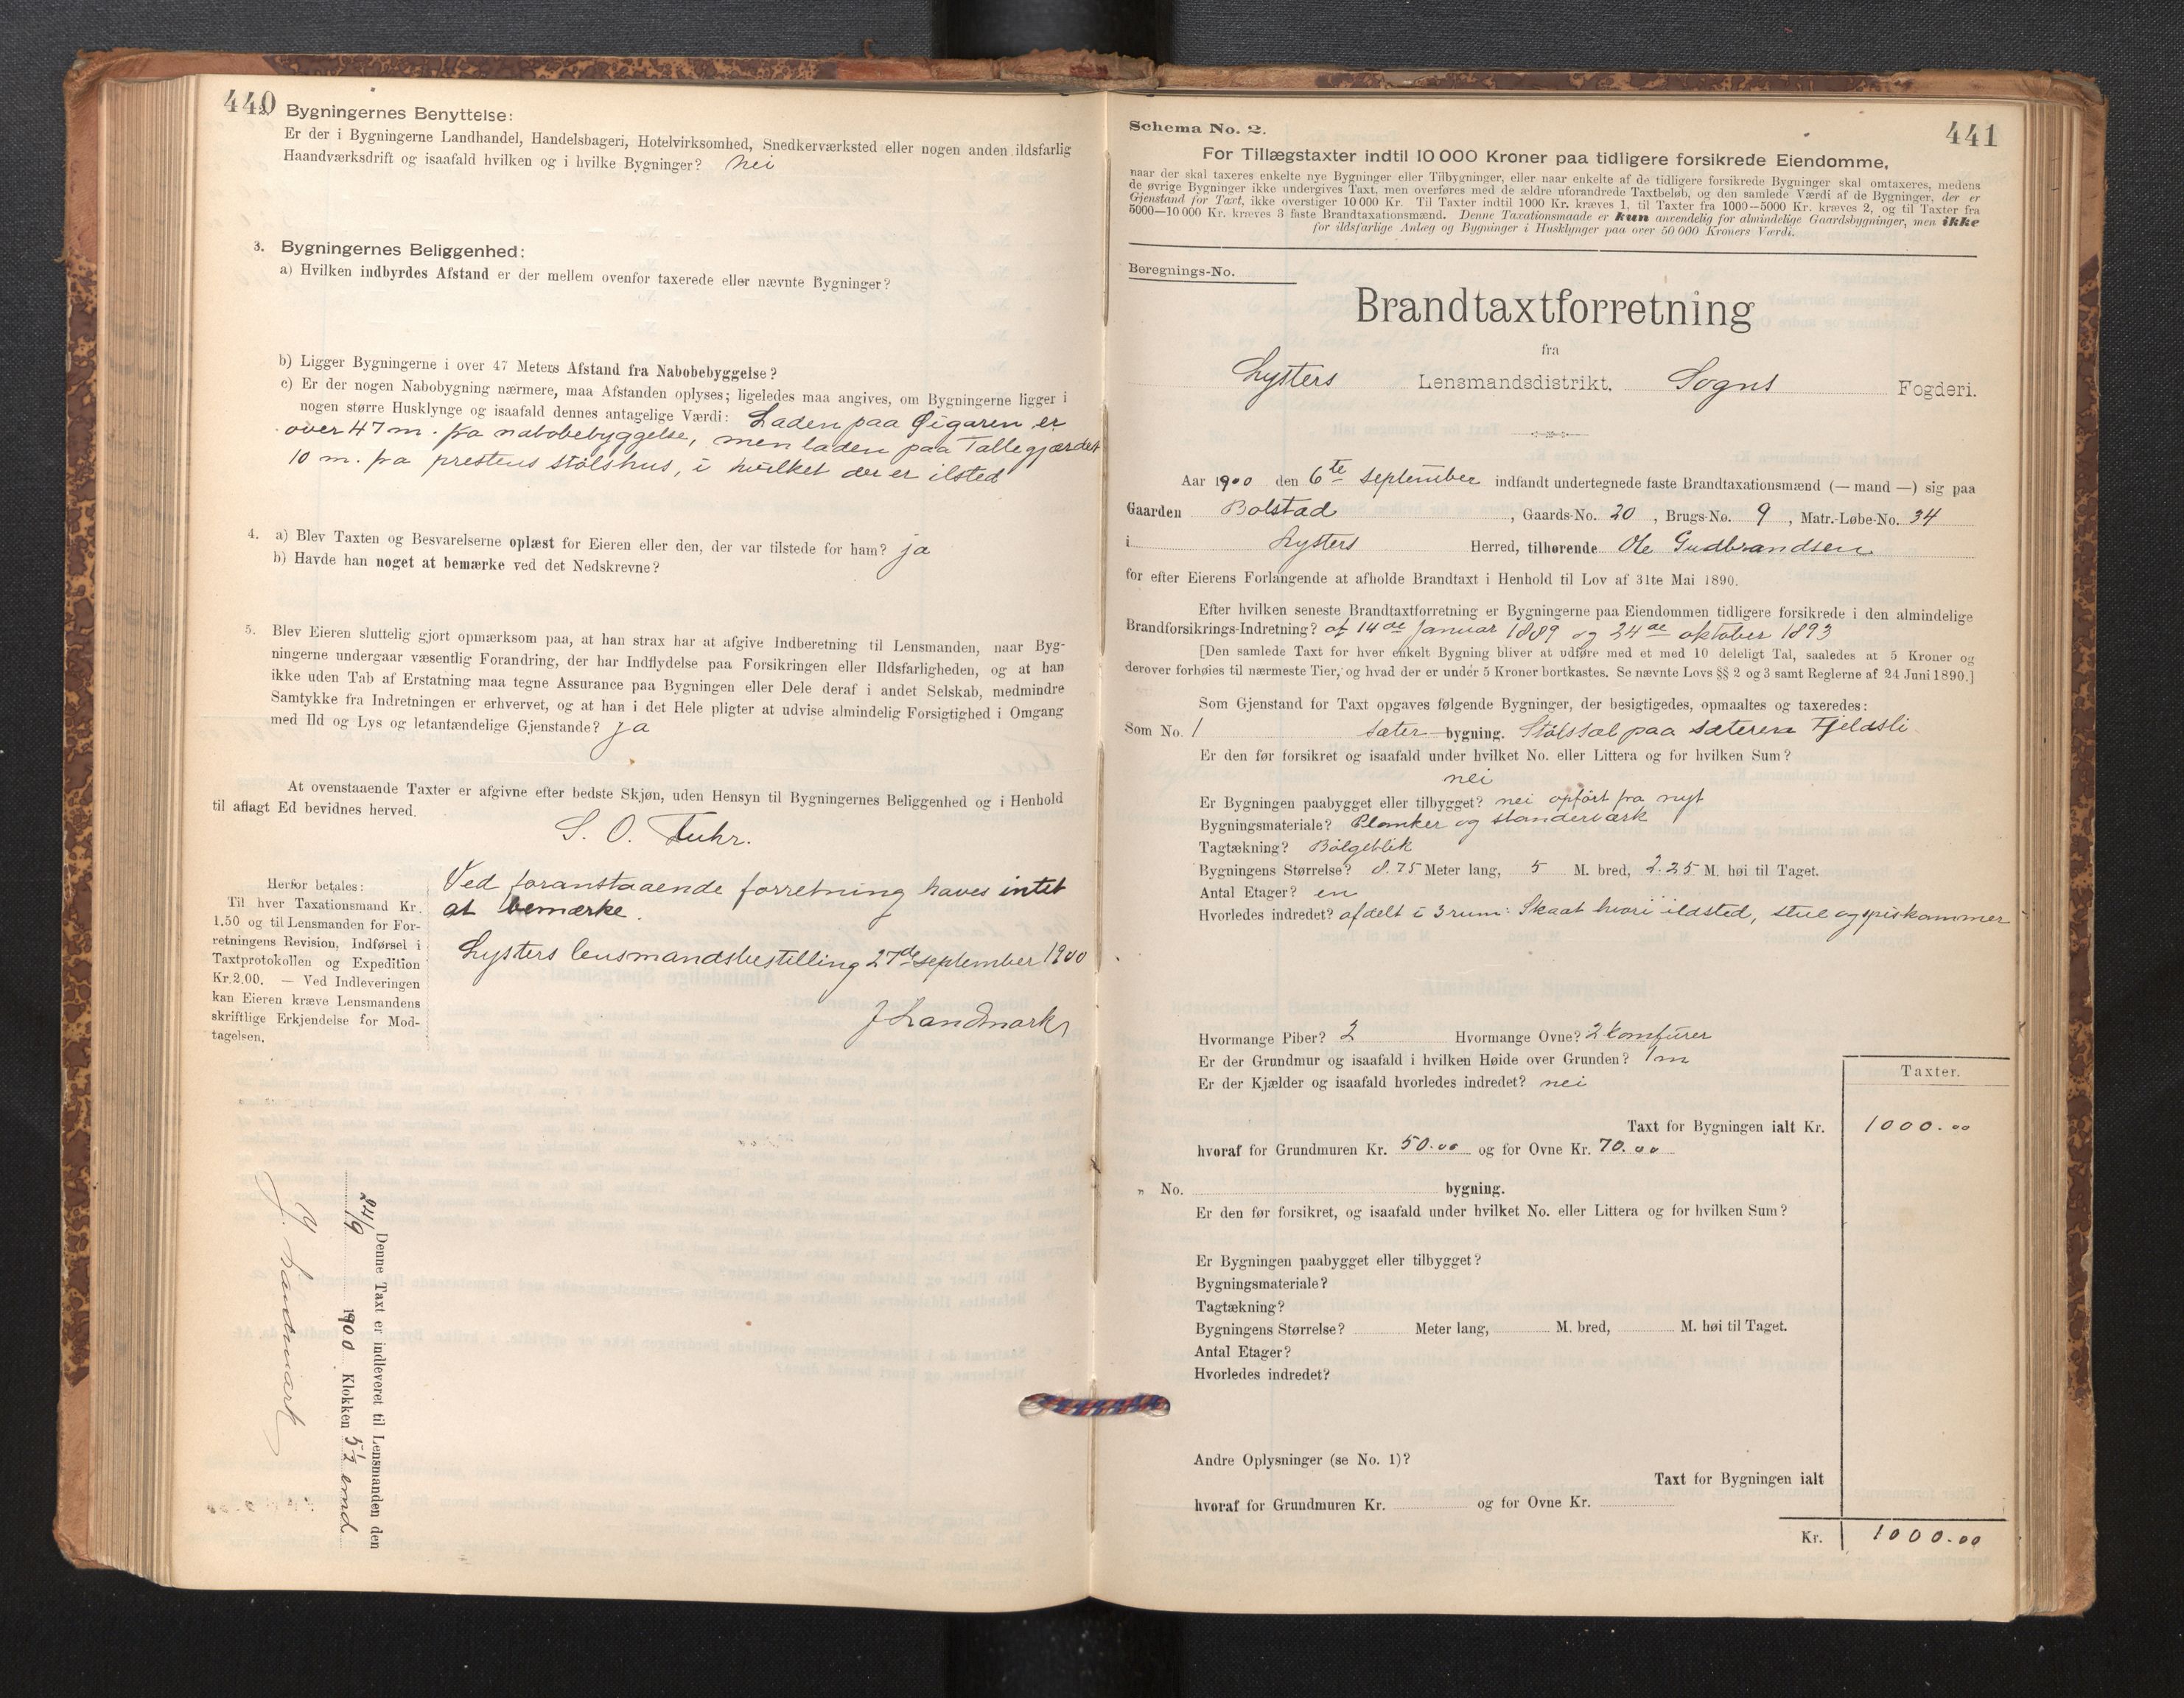 440
Bygningernes Benyttelse:
Er der i Bygningerne Landhandel, Handelsbageri, Hotelvirksomhed, Snedkerværksted eller nogen anden ildsfarlig
Haandværksdrift og isaafald hvilken og i hvilke Bygninger? nei
3. Bygningernes Beliggenhed:
a) Hvilken indbyrdes Afstand er der mellem ovenfor taxerede eller nævnte Bygninger?
b) Ligger Bygningerne i over 47 Meters Afstand fra Nabobebyggelse?
c) Er der nogen Nabobygning nærmere, maa Afstanden oplyses; ligeledes maa angives, om Bygningerne ligger i
nogen større Husklynge og isaafald dennes antagelige Værdi: Laden paa Øigaren er
over 47 m. fra nabobebyggelse, men laden paa Tallegjærdet
10 m. fra prestens stølshus, i hvilket der er ilsted
4. a) Blev Taxten og Besvarelserne oplæst for Eieren eller den, der var tilstede for ham? ja
b) Havde han noget at bemærke ved det Nedskrevne?
5. Blev Eieren sluttelig gjort opmærksom paa, at han strax har at afgive Indberetning til Lensmanden, naar Byg-
ningerne undergaar væsentlig Forandring, der har Indflydelse paa Forsikringen eller Ildsfarligheden, og at han
ikke uden Tab af Erstatning maa tegne Assurance paa Bygningen eller Dele deraf i andet Selskab, medmindre
Samtykke fra Indretningen er erhvervet, og at han i det Hele pligter at udvise almindelig Forsigtighed i Omgang
med Ild og Lys og letantændelige Gjenstande? ja
At ovenstaaende Taxter er afgivne efter bedste Skjøn, uden Hensyn til Bygningernes Beliggenhed og i Henhold
til aflagt Ed bevidnes herved.
S. O. Fuhr.
Herfor betales:
Til hver Taxationsmand Kr.
1.50 og til Lensmanden for For-
retningens Revision, Indførsel i
Taxtprotokollen og Expedition
Kr. 2.00. — Ved Indleveringen
kan Eieren kræve Lensmandens
skriftlige Erkjendelse for Mod-
tagelsen.
Ved foranstaaende forretning haves intet
at bemærke.
Lysters lensmandsbestilling 27de september 1900
J Landmark
Denne Taxt er indleveret til Lensmanden den
24/9 1900 Klokken 5½ emd
J. Landmark
441
Schema No. 2.
For Tillægstaxter indtil 10 000 Kroner paa tidligere forsikrede Eiendomme,
naar der skal taxeres enkelte nye Bygninger eller Tilbygninger, eller naar enkelte af de tidligere forsikrede Bygninger skal omtaxeres, medens
de øvrige Bygninger ikke undergives Taxt, men overføres med de ældre uforandrede Taxtbeløb, og den samlede Værdi af de Bygninger, der er
Gjenstand for Taxt, ikke overstiger 10 000 Kr. Til Taxter indtil 1000 Kr. kræves 1, til Taxter fra 1000—5000 Kr. kræves 2, og til Taxter fra
5000—10 000 Kr. kræves 3 faste Brandtaxationsmænd. Denne Taxationsmaade er kun anvendelig for almindelige Gaardsbygninger, men ikke
for ildsfarlige Anlæg og Bygninger i Husklynger paa over 50 000 Kroners Værdi.
Beregnings-No.
Brandtaxtforretning
fra
Lysters Lensmandsdistrikt, Sogns Fogderi.
Aar 1900 den 6te september indfandt undertegnede faste Brandtaxationsmænd (— mand —) sig paa
Gaarden Bolstad, Gaards-No. 20, Brugs-No. 9, Matr.-Løbe-No. 34
i Lysters Herred, tilhørende Ole Gudbrandsen
for efter Eierens Forlangende at afholde Brandtaxt i Henhold til Lov af 31te Mai 1890.
Efter hvilken seneste Brandtaxtforretning er Bygningerne paa Eiendommen tidligere forsikrede i den almindelige
Brandforsikrings-Indretning? af 14de Januar 1889 og 24de oktober 1893
[Den samlede Taxt for hver enkelt Bygning bliver at udføre med et med 10 deleligt Tal, saaledes at 5 Kroner og
derover forhøies til nærmeste Tier, og hvad der er under 5 Kroner bortkastes. Se nævnte Lovs §§ 2 og 3 samt Reglerne af 24 Juni 1890.]
Som Gjenstand for Taxt opgaves følgende Bygninger, der besigtigedes, opmaaltes og taxeredes:
Som No. 1 sæter bygning. Stølssel paa sæteren Fjeldsli
Er den før forsikret og isaafald under hvilket No. eller Littera og for hvilken Sum?
nei
Er Bygningen paabygget eller tilbygget? nei opført fra nyt
Bygningsmateriale? Planker og standerværk
Tagtækning? Bølgeblik
Bygningens Størrelse? 8.75 Meter lang, 5 M. bred, 2.25 M. høi til Taget.
Antal Etager? en
Hvorledes indredet? afdelt i 3 rum: Skaat hvori ildsted, stue og spiskammer
Hvormange Piber? 2 Hvormange Ovne? 2 komfurer
Er der Grundmur og isaafald i hvilken Høide over Grunden? 1m
Er der Kjælder og isaafald hvorledes indredet? nei
Taxter.
Taxt for Bygningen ialt Kr. 1000.00
hvoraf for Grundmuren Kr. 50.00 og for Ovne Kr. 70.00
" No. bygning.
Er den før forsikret, og isaafald under hvilket No. eller Littera og for hvilken Sum?
Er Bygningen paabygget eller tilbygget?
Bygningsmateriale?
Tagtækning?
Bygningens Størrelse? Meter lang, M. bred, M. høi til Taget.
Antal Etager?
Hvorledes indredet?
Andre Oplysninger (se No. 1)?
Taxt for Bygningen ialt
hvoraf for Grundmuren Kr. og for Ovne Kr.
Kr. 1000.00